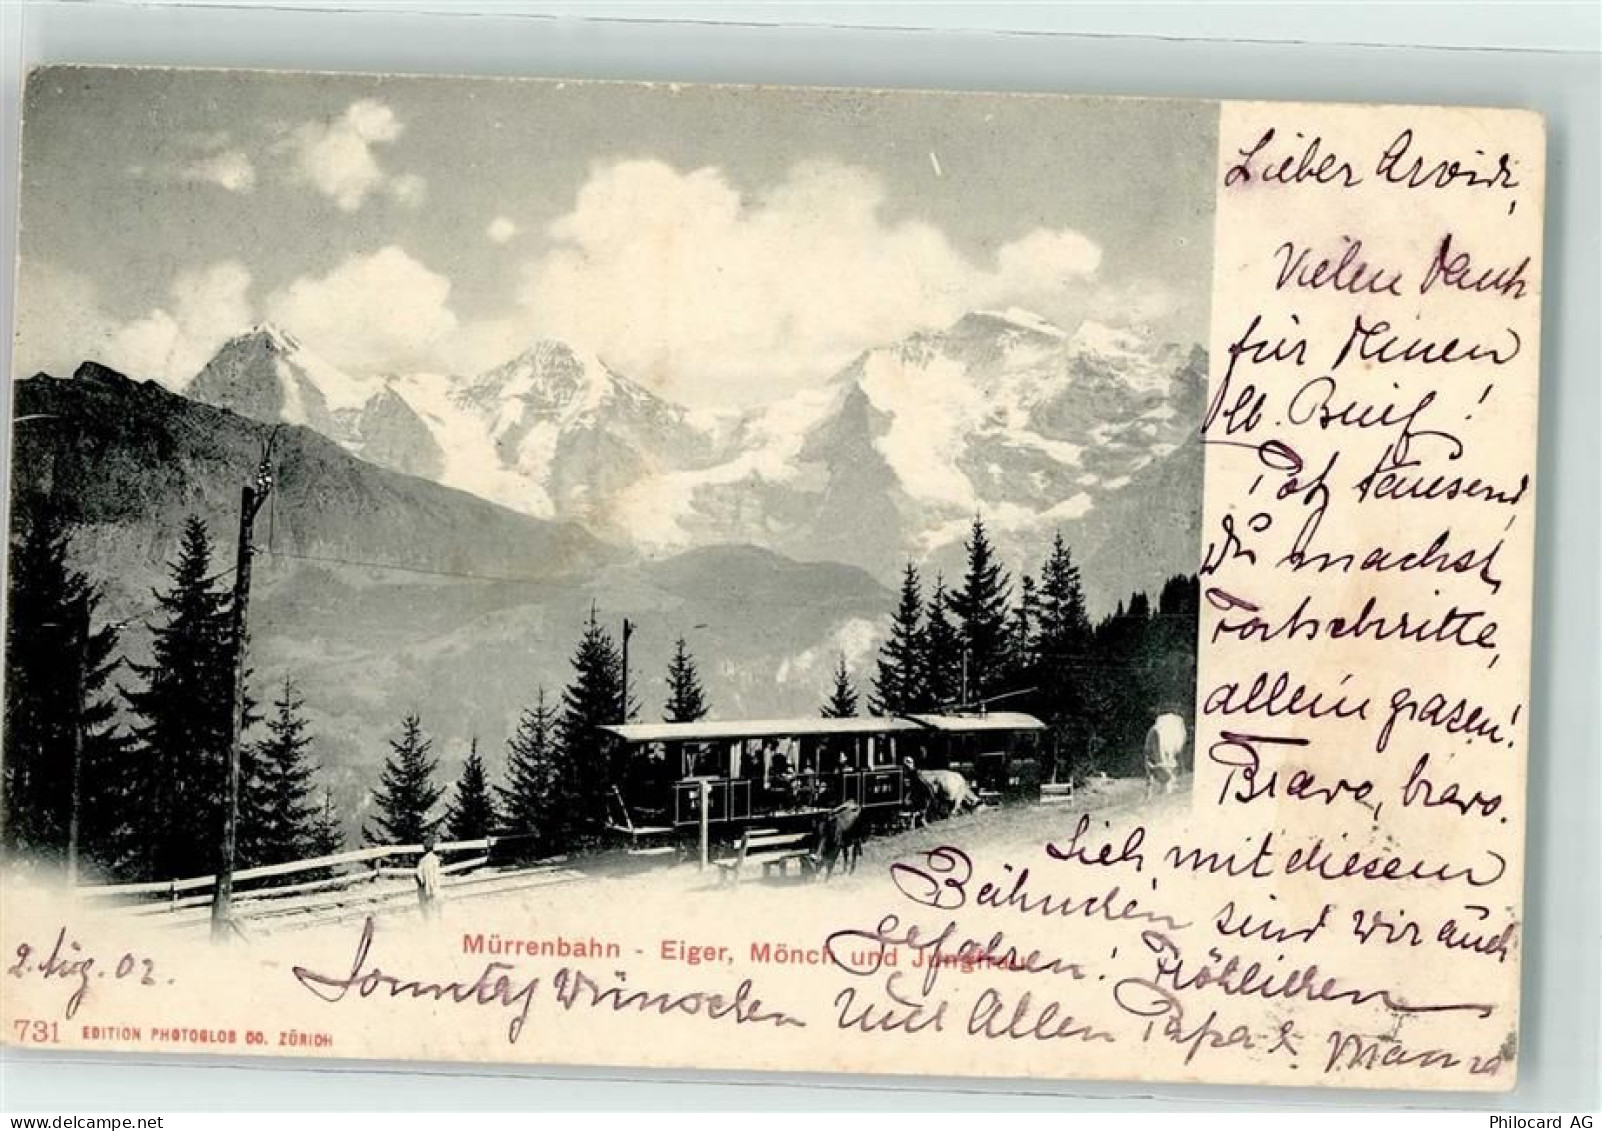 Lieber Arvid,
Vielen Dank
für Deinen
lb. Brief!
Potz tausend,
Du machst
Fortschritte,
allein grasen!
Bravo, bravo.
Sieh, mit diesem
Bähnchen sind wir auch
gefahren! Fröhlichen
Sonntag wünschen Dir und Allen Papa &. Mama
2. Aug. 02.
Mürrenbahn - Eiger, Mönch und Jungfrau
731 EDITION PHOTOGLOB CO. ZÜRICH
Philocard AG